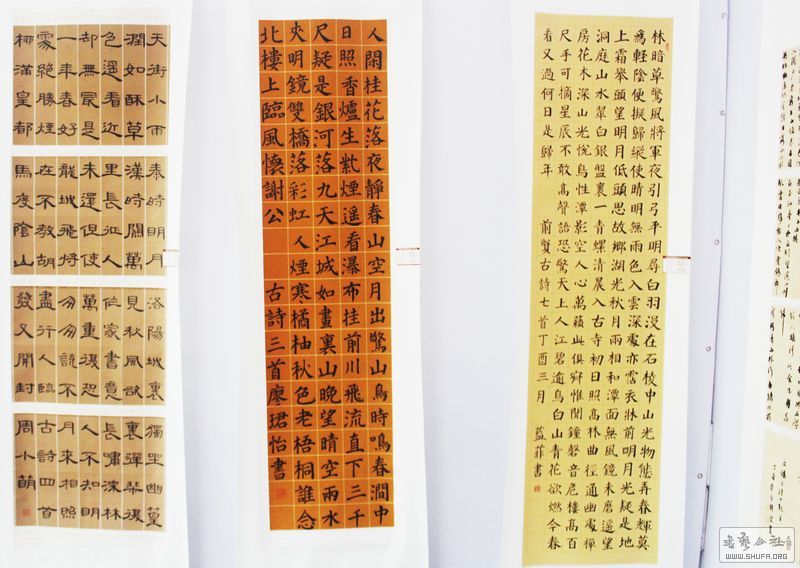 天街小雨
潤如酥草
色遥看近
却無最是
一年春好
處絕勝煙
柳滿皇都
秦時明月
漢時關萬
里長征人
未還但使
龍城飛將
在不教胡
馬度陰山
洛陽城裏
見秋風欲
作家書意
萬重復恐
匆匆說不
盡行人臨
發又開封
獨坐幽篁
裏彈琴復
長嘯深林
人不知明
月來相照
古詩四首
周小萌
人閑桂花落夜靜春山空月出驚山鳥時鳴春澗中
日照香爐生紫煙遥看瀑布挂前川飛流直下三千
尺疑是銀河落九天江城如畫裏山晚望晴空兩水
夾明鏡雙橋落彩虹人煙寒橘柚秋色老梧桐誰念
北樓上臨風懷謝公 古詩三首廖珺怡書
林暗草驚風將軍夜引弓平明尋白羽没在石棱中山光物態弄春輝莫
爲輕陰便擬歸縱使晴明無雨色入雲深處亦霑衣牀前明月光疑是地
上霜舉頭望明月低頭思故鄉湖光秋月兩相和潭面無風鏡未磨遥望
洞庭山水翠白銀盤裏一青螺清晨入古寺初日照高林曲徑通幽處禪
房花木深山光悦鳥性潭影空人心萬籟此俱寂惟聞鐘聲音危樓高百
尺手可摘星辰不敢高聲語恐驚天上人江碧逾鳥白山青花欲燃今春
看又過何日是歸年 前賢古詩七首丁酉三月 藍菲書
書藝公社
WWW.SHUFA.ORG